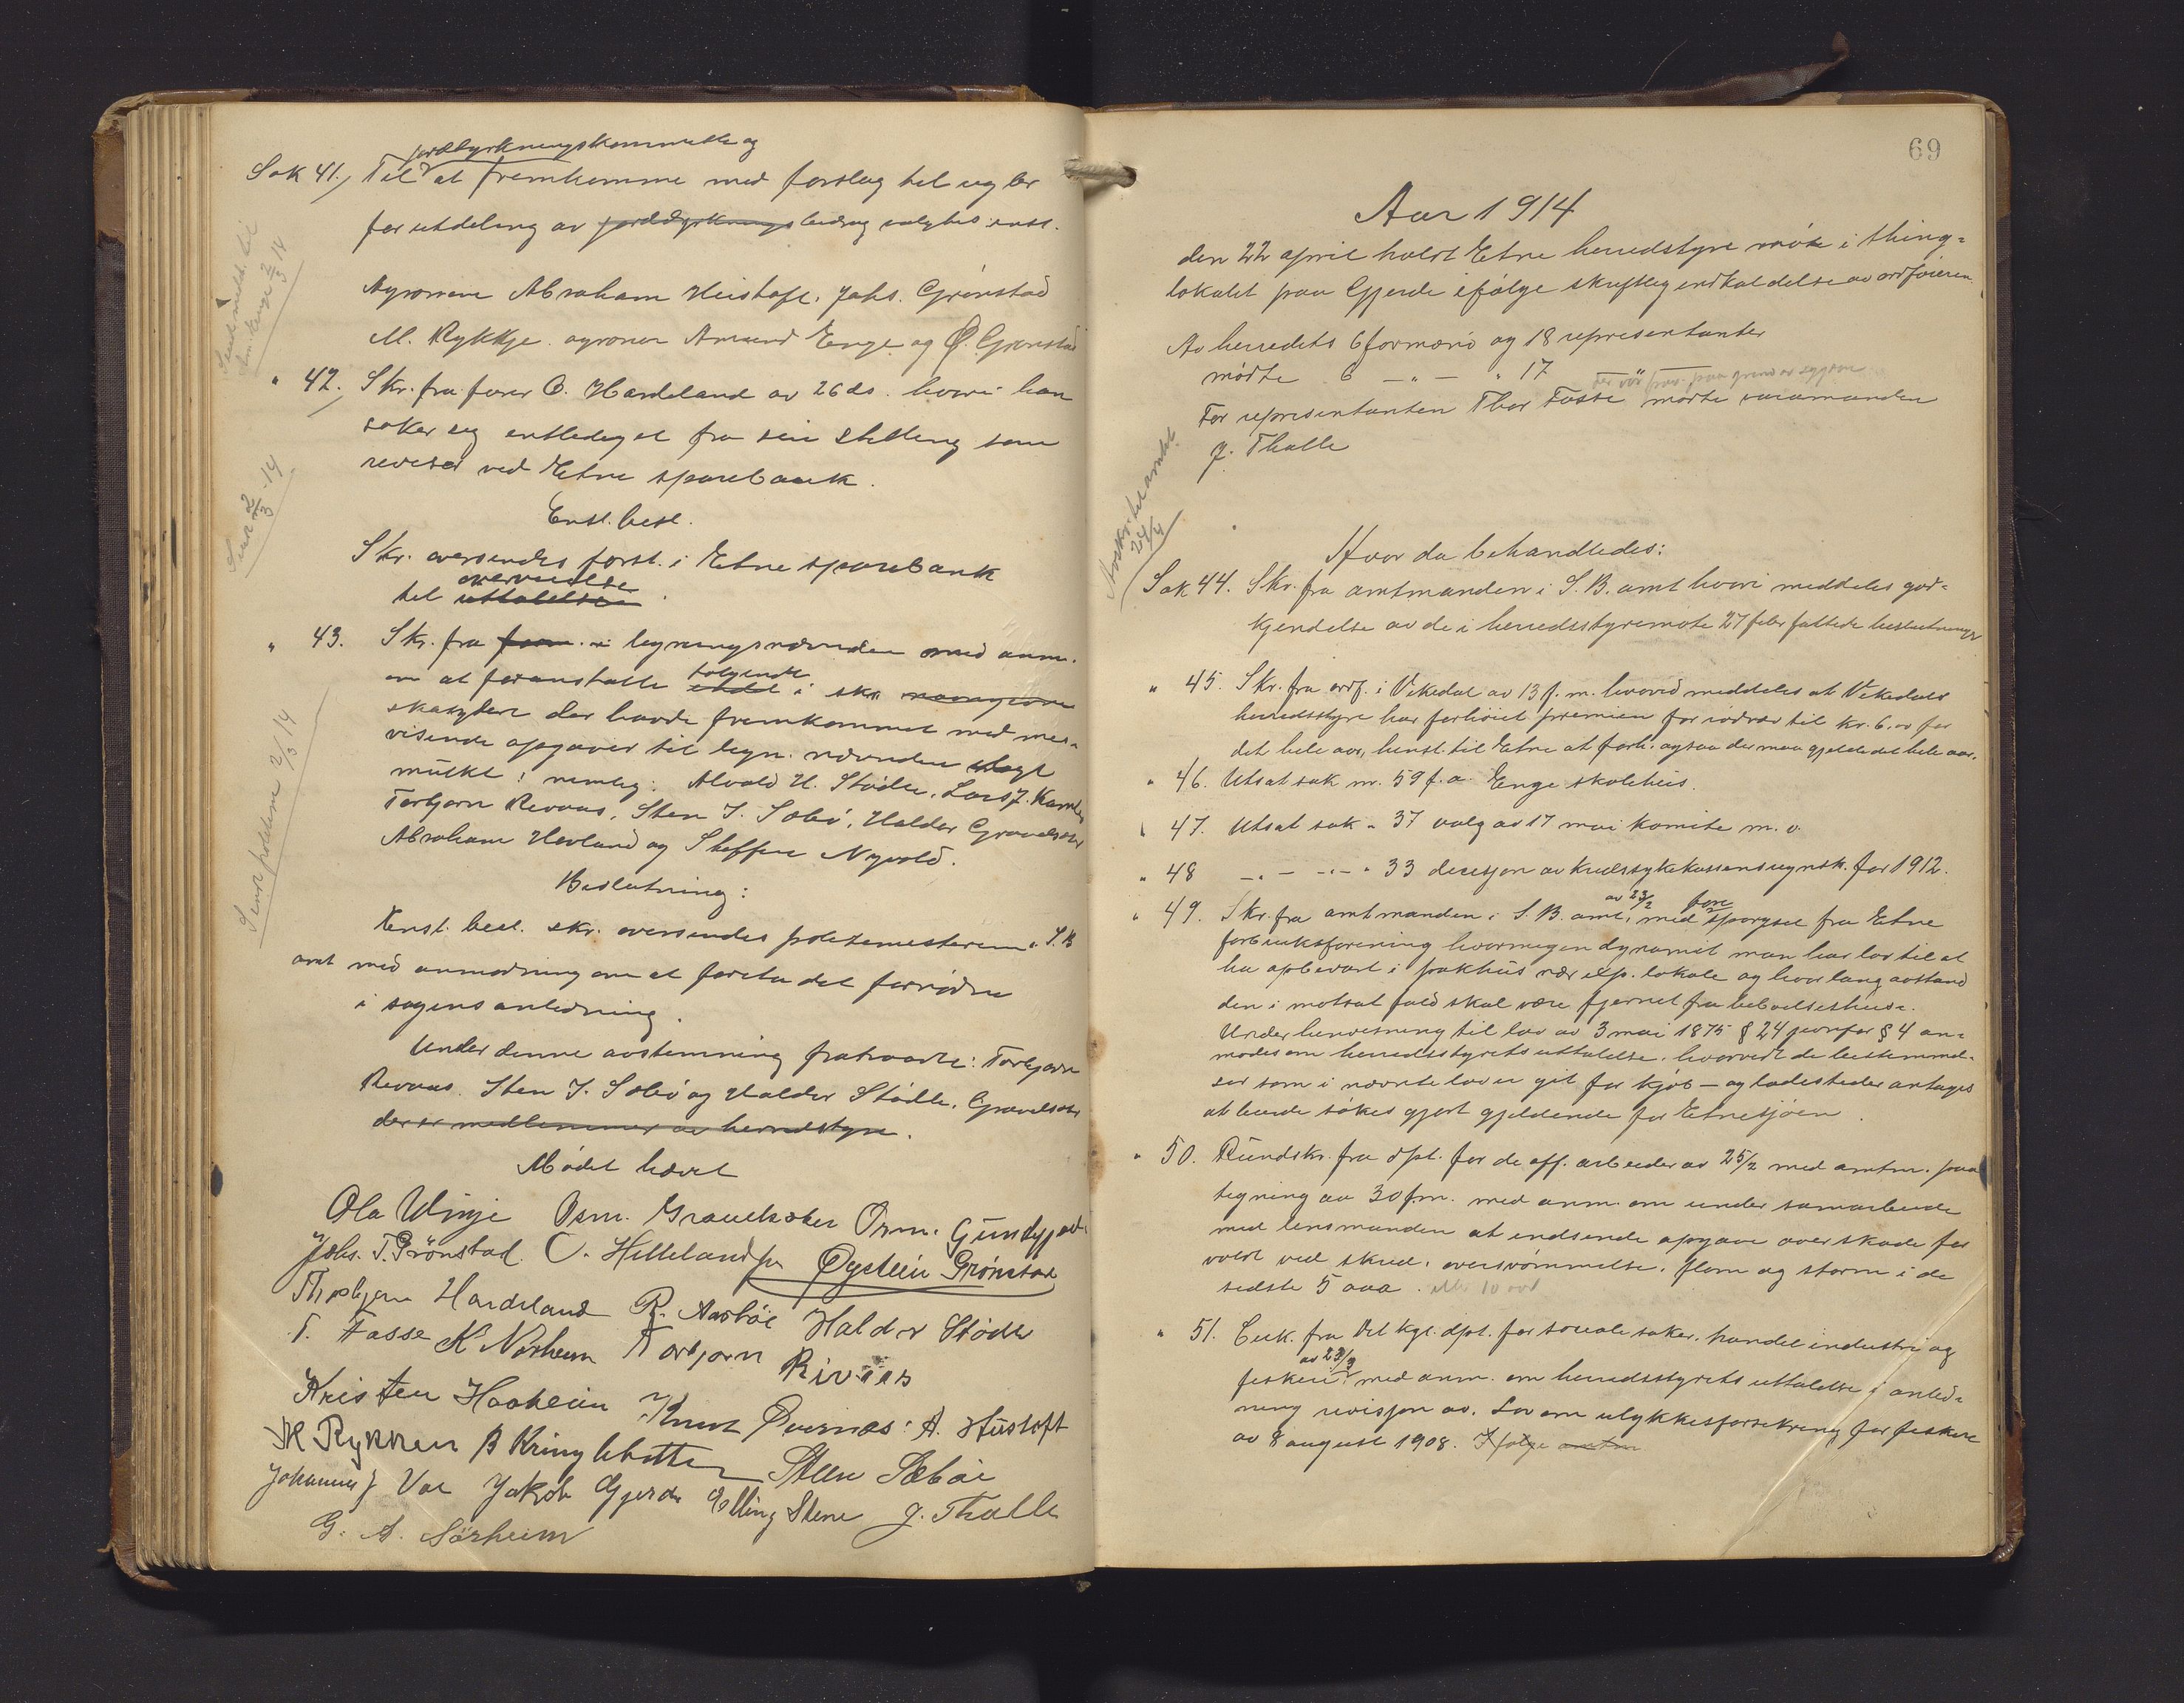 jorddyrkningskommitte og
Sak 41. Til at fremkomme med forslag til regler
for utdeling av jorddyrkningsbidrag valgtes enst.
Agronom Abraham Heistoft, Johs. Grønstad
M. Rykkje. agronom Amund Enge og Ø. Grønstad
Send meld. til
Am. Enge 2/3 14
" 42. Skr. fra fører O. Hardeland av 26 ds. hvori han
søker sig entlediget fra sin stilling som
revisor ved Etne sparebank.
Send 2/3 14
Enst. besl.
Skr. oversendes forst. i Etne sparebank
overveielse
til uttalelse.
" 43. Skr. fra form. i ligningsnævnden med anm.
følgende
om at foranstalte endel i skr. navngivne
skatydere der havde fremkommet med mis-
visende opgaver til lign. nævnden ilagt
mulkt: nemlig: Alvald H. Stødle, Lars J.
Torbjørn Revaas, Sten I. Sæbø, Haldor Gravelsæter
Abraham Hevland og Steffen Nyvold.
Beslutning:
Send politim 2/3 14
Enst. besl. skr. oversendes politimesteren i S. B
amt med anmodning om at foreta det fornødne
i sagens anledning.
Under denne avstemning fratraadte: Torbjørn
Revaas. Sten I. Sæbø og Haldor Stødle, Gravelsæter
der er medlemmer av herredstyre.
Mødet hævet
Ola Vinje Osm. Grauelsæter Orm.
Johs. T. Grønstad. O. Helleland Øystein Grønstad
Thorbjørn Hardeland R. Aarbøe Haldor Stødle
T. Fosse K Nerheim Torbjørn Rivaas
Kristen Haaheim Knut A. Hustoft
M Rykken B Kringlebotten Steen Sæbøe
Johannes J Vae Jakob Gjerde Elling Stene J. Thalle
G. A. Sørheim
69
Aar 1914
den 22 april holdt Etne herredstyre møte i thing-
lokalet paa Gjerde ifølge skriftlig indkaldelse av ordføieren.
Av herredets 6 formænd og 18 representanter
mødte 6 — " — " 17
For representanten Thor Fosse mødte varamanden
J. Thalle
Avskr. til amtet
24/4
Hvor da behandledes:
Sak 44. Skr. fra amtmanden i S. B. amt hvori meddeles god-
kjendelse av de i herredsstyremøte 27 febr fattede beslutninger
" 45. Skr. fra ordf. i Vikedal av 13 f. m. hvorved meddeles at Vikedals
herredsstyre har forhøiet premien for rødræv til kr. 6. for
det hele aar, henst. til Etne at forh. ogsaa der maa gjelde det hele aar.
" 46. Utsat sak nr. 59 f. a. Enge skolehus.
" 47. Utsat sak " 37 valg av 17 mai komite m. v.
" 48 — " — " — " 33 decisjon av kredssykekassens regnsk. for 1912.
av 23/2 fore
" 49. Skr. fra amtmanden i S. B. amt, med spørgsel fra Etne
forbruksforening hvormegen dynamit man har lov til at
ha opbevart i pakhus nær exp. lokale og hvor lang avstand
den i motsat fald skal være fjernet fra beboelseshus.
Under henvisning til lov av 3 mai 1875 § 24 jevnfør § 4 an-
modes om herredsstyrets uttalelse, hvorvidt de bestemmel-
ser som i nævnte lov er git for kjøb- og ladesteder antages
at burde søkes gjort gjeldende for Etnesjøen.
" 50. Rundskr. fra dpt. for de off. arbeider av 25/2 med amtm. paa
tegning av 30 f.m. med anm. om under samarbeide
med lensmanden at indsende opgave over skade for
voldt ved skred, oversvømmelse, flom og storm i de
sidste 5 aar. eller 10 aar
" 51. Cirk. fra Det kgl. dpt. for sociale saker, handel industri og
av 23/3
fiskeri med anm. om herredsstyrets uttalelse i anled-
ning revisjon av. Lov om ulykkesforsikring for fiskere
av 8 august 1908. Ifølge amtm